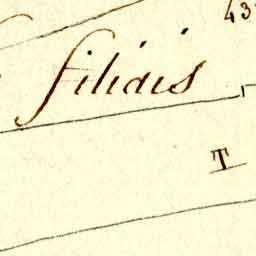 43
filiais
T